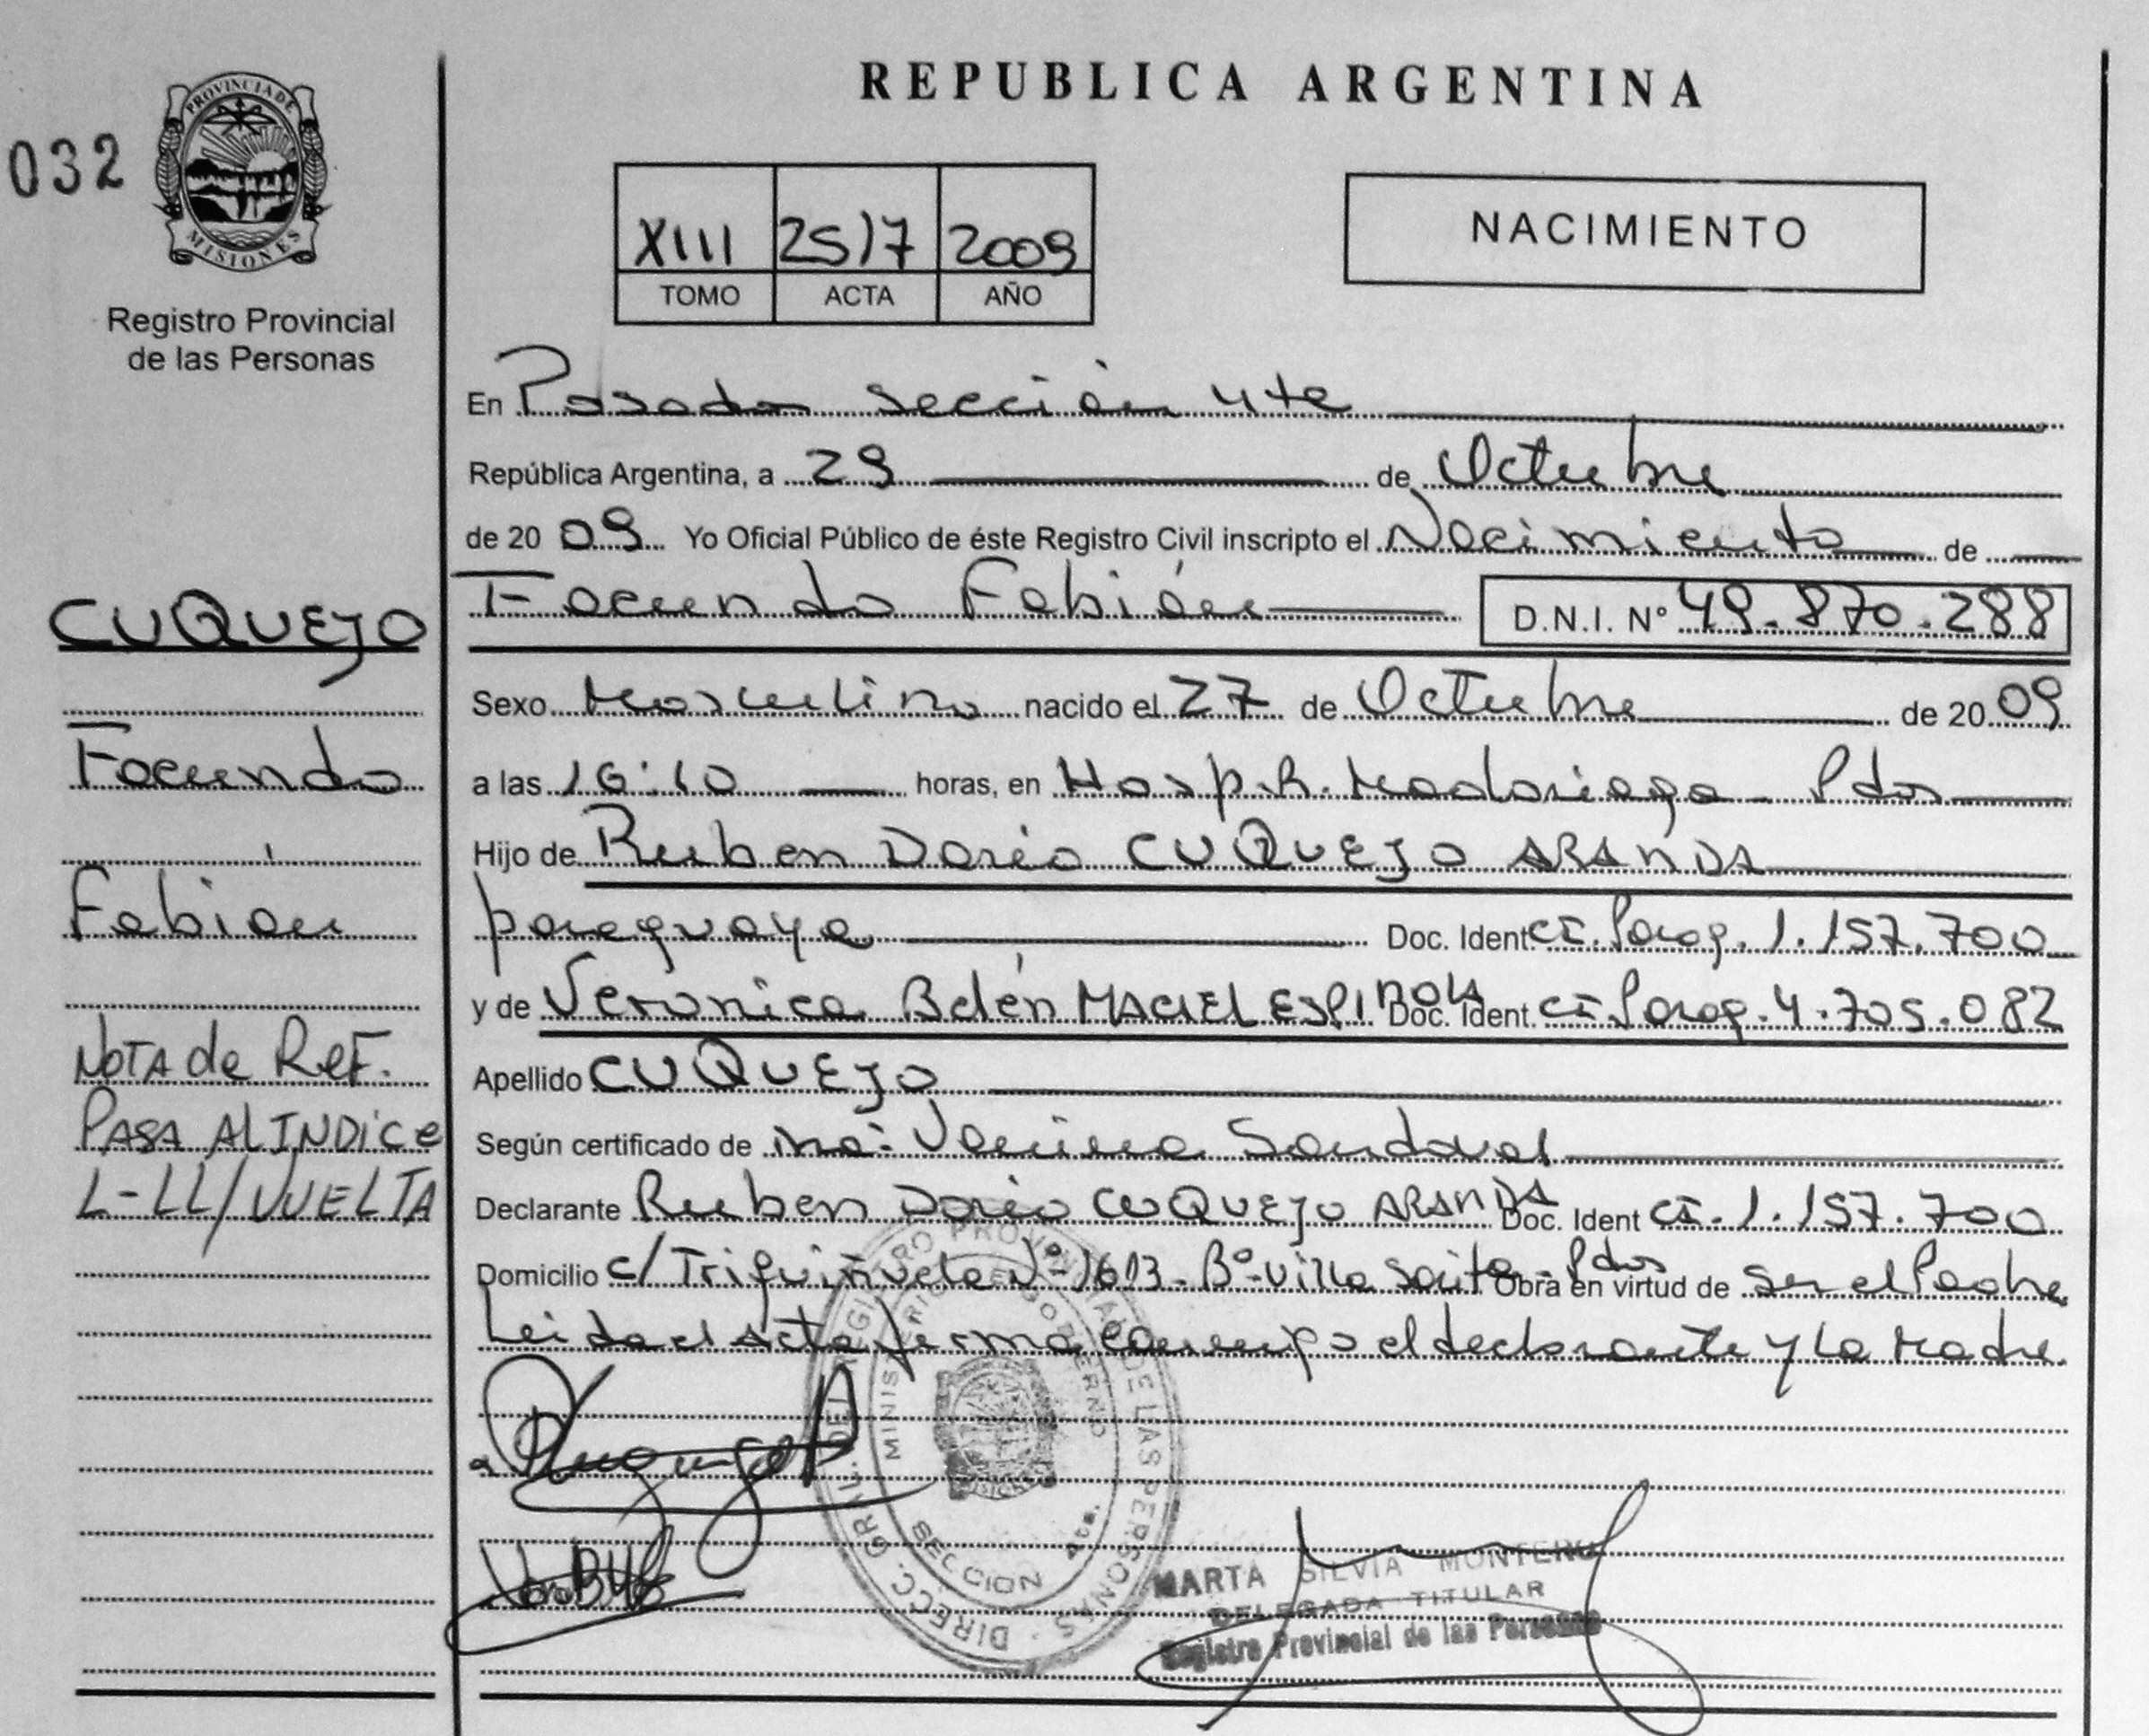 REPUBLICA ARGENTINA
032
PROVINCIA DE
MISIONES
Registro Provincial
de las Personas
XIII 2517 2009
TOMO ACTA AÑO
NACIMIENTO
En Posadas sección 4ta
República Argentina, a 29 de Octubre
de 20 09 Yo Oficial Público de éste Registro Civil inscripto el Nacimiento de
Facundo Fabián D.N.I. Nº 49.870.288
CUQUEJO
Facundo
Fabián
NOTA de ReF.
PASA Al INDice
L-LL/VUELTA
Sexo Masculino nacido el 27 de Octubre de 20 09
a las 16:10 horas, en Hosp. R. Madariaga - Pdas
Hijo de Ruben Dario CUQUEJO ARANDA
paraguaya Doc. Ident CI. Parag. 1.157.700
y de Verónica Belén MACIEL ESPINOLA Doc. Ident. CI Parag. 4.705.082
Apellido CUQUEJO
Según certificado de Vanina Sandoval
Declarante Ruben Dario CUQUEJO ARANDA Doc. Ident CI. 1.157.700
Domicilio c/ Trifuiñuela Nº 1613 - Bº Villa Sarita - Pdas Obra en virtud de Ser el Padre
Leida el Acta firma conmigo el declarante y la Madre.
DIRECC. GRAL. DEL REGISTRO PROVINCIAL DE LAS PERSONAS
MINISTERIO DE GOBIERNO
SECCION 4ta.
MARTA SILVIA MONTERO
DELEGADA TITULAR
Registro Provincial de las Personas